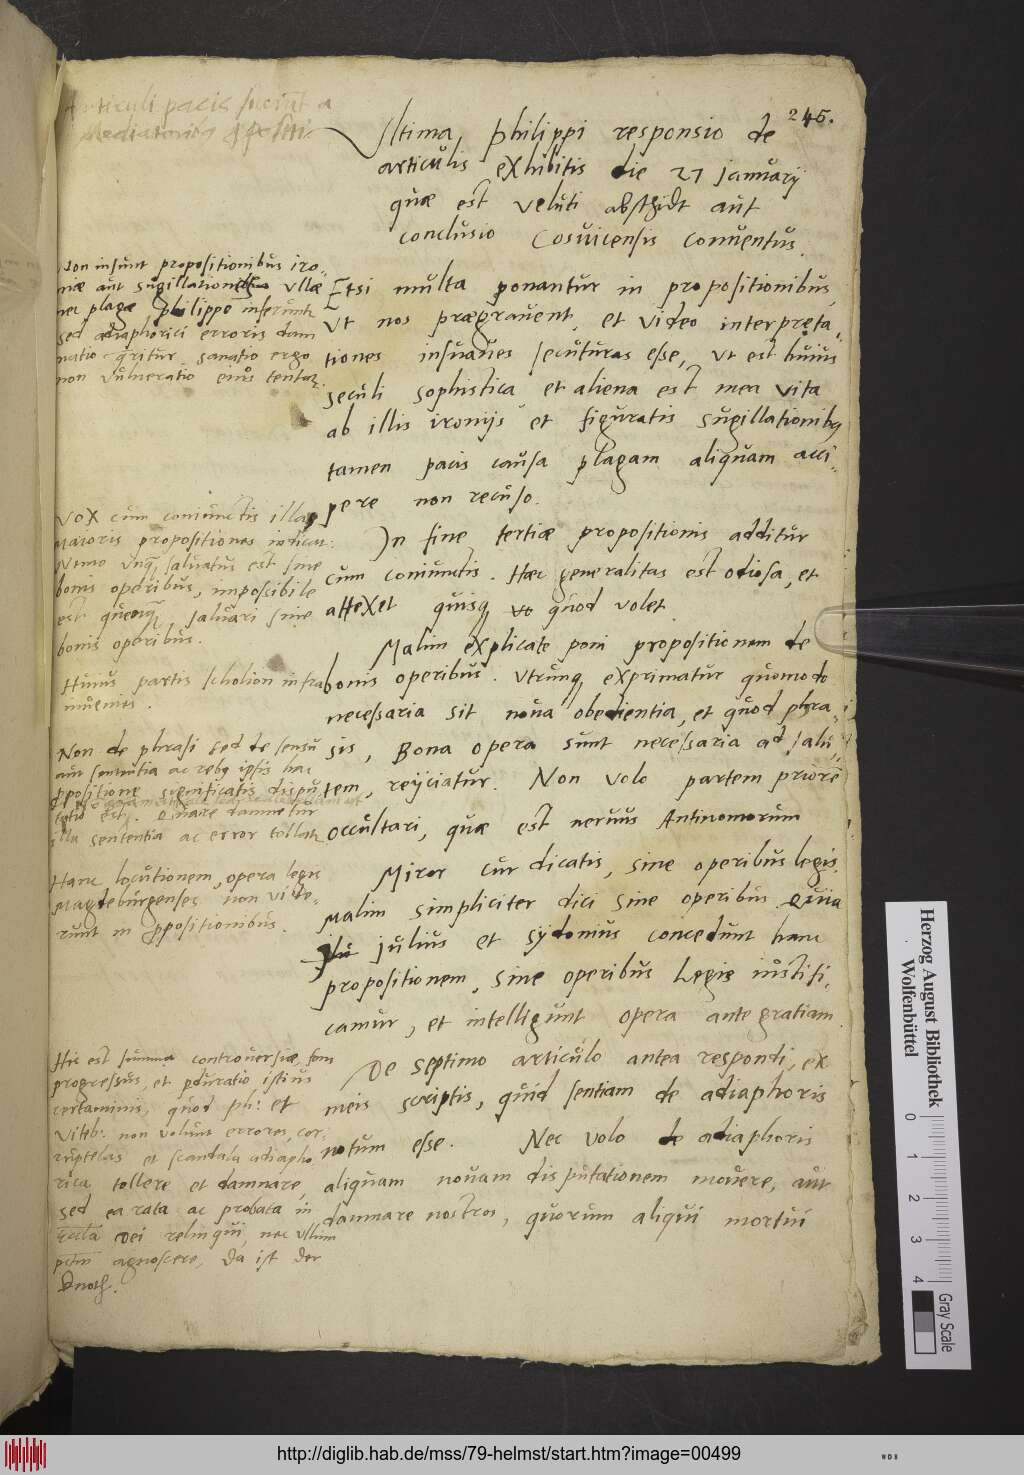 Articuli pacis
245.
Ultima Philippi responsio de
articulis exhibitis die 27 januarij
quæ est veluti abschidt aut
conclusio Cosuicensis conuentus.
Non insunt propositionibus iro-
niæ aut sugillationes ullæ
nec plagæ philippo inferunt
sed adiaphorici erroris dam
natio qritur sanatio ergo
non vulneratio eius tentat
Etsi multa ponantur in propositionibus,
ut nos prægrauent, et video interpreta-
tiones insuaues secuturas esse, ut est huius
seculi sophistica, et aliena est mea vita
ab illis ironijs et figuratis sugillationibus
tamen pacis causa plagam aliquam acci-
pere non recuso.
Vox cum coniunctis illas
maioris propositiones indicat:
Nemo unq saluatus est sine
bonis operibus, impossibile
est quenq saluari sine
bonis operibus.
In fine tertiæ propositionis additur
cum coniunctis. Hæc generalitas est odiosa, et
attexet quisq quod volet
Huius partis scholion infra
inuenies.
Malim explicate poni propositionem de
bonis operibus. Utrunq exprimatur quomodo
necessaria sit noua obedientia, et quod phra-
sis, Bona opera sunt necessaria ad salu-
tem, reijciatur. Non volo partem priore
occultari, quæ est neruus Antinomorum
Non de phrasi sed de sensu
aut sententia ac rebus ipsis hac
ppositione significatis dispu
tatio est. Quare damnetur
illa sententia ac error tollat
Hanc locutionem, opera legis
Magdeburgenses non vide-
runt in ppositionibus.
Miror cur dicatis, sine operibus legis.
Malim simpliciter dici sine operibus Quia
julius et sydonius concedunt hanc
propositionem, sine operibus Legis iustifi-
camur, et intelligunt opera ante gratiam.
Hic est summa controuersiæ,
progressus, et pduratio istius
certaminis, quod ph: et
Viteb: non volunt errores, cor-
ruptelas et scandala adiapho
rica tollere et damnare,
sed ea rata ac probata in
Dei relinqui, nec ullum
agnoscere, Da ist der
Knoth.
De septimo articulo antea respondi, ex
meis scriptis, quid sentiam de adiaphoris
notum esse. Nec volo de adiaphoris
aliquam nouam disputationem mouere, aut
damnare nostros, quorum aliqui mortui
Herzog August Bibliothek
Wolfenbüttel
0 1 2 3 4
Gray Scale
http://diglib.hab.de/mss/79-helmst/start.htm?image=00499